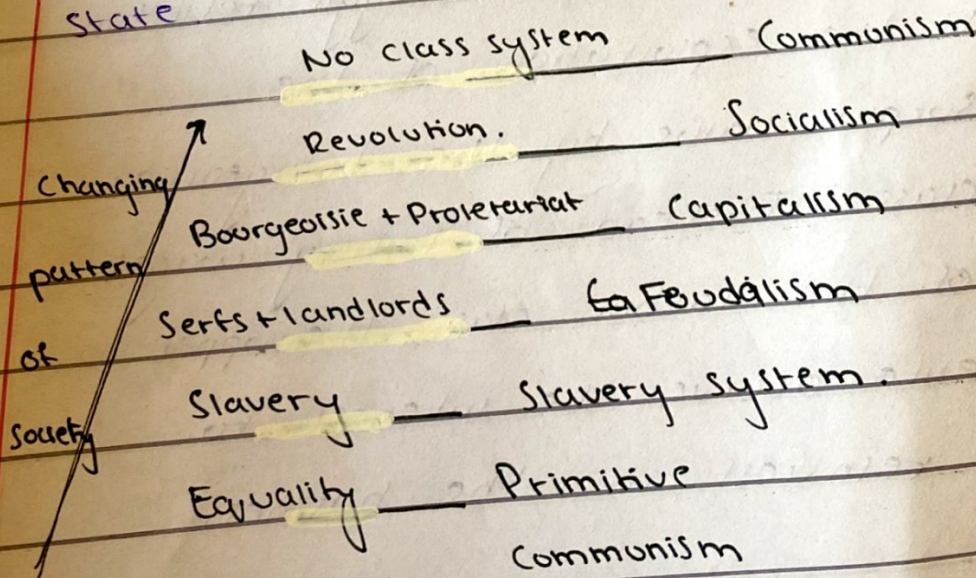 State
No class system Communism
Revolution. Socialism
Changing
Bourgeoisie + Proletariat Capitalism
pattern
Serfs + landlords Feudalism
of
Slavery Slavery system.
Society
Equality Primitive
Communism